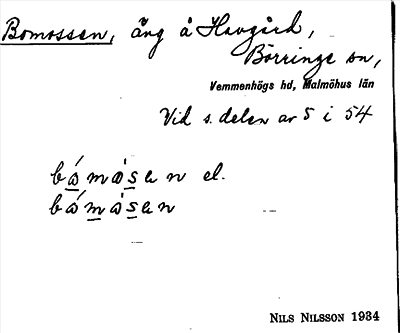 Bomossen, äng å Havgård,
Börringe sn,
Vemmenhögs hd, Malmöhus län
Vid s. delen av 5 i 54
el.
NILS NILSSON 1934